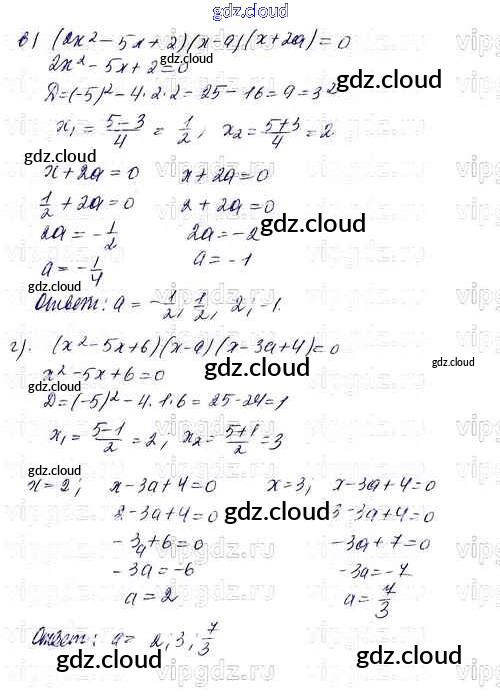 gdz.cloud
в) (2x² - 5x + 2)(x - a)(x + 2a) = 0
2x² - 5x + 2 = 0
D = (-5)² - 4·2·2 - 25 - 16 = 9 = 3²
x₁ = (5-3)/4 = 1/2, x₂ = (5+3)/4 = 2.
gdz.cloud
x + 2a = 0 x + 2a = 0
1/2 + 2a = 0 2 + 2a = 0
gdz.cloud
2a = -1/2 2a = -2
a = -1/4 a = -1
gdz.cloud
Ответ: a = -1/2; 1/2, 2; -1.
gdz.cloud
г). (x² - 5x + 6)(x - a)(x - 3a + 4) = 0
gdz.cloud gdz.cloud
x² - 5x + 6 = 0
D = (-5)² - 4·1·6 = 25 - 24 = 1
gdz.cloud
x₁ = (5-1)/2 = 2; x₂ = (5+1)/2 = 3
gdz.cloud
x = 2; x - 3a + 4 = 0 x = 3; x - 3a + 4 = 0
2 - 3a + 4 = 0 3 - 3a + 4 = 0
gdz.cloud
-3a + 6 = 0 -3a + 7 = 0
-3a = -6 -3a = -7
a = 2 a = 7/3
gdz.cloud
Ответ: a = 2; 3; 7/3
gdz.cloud gdz.cloud